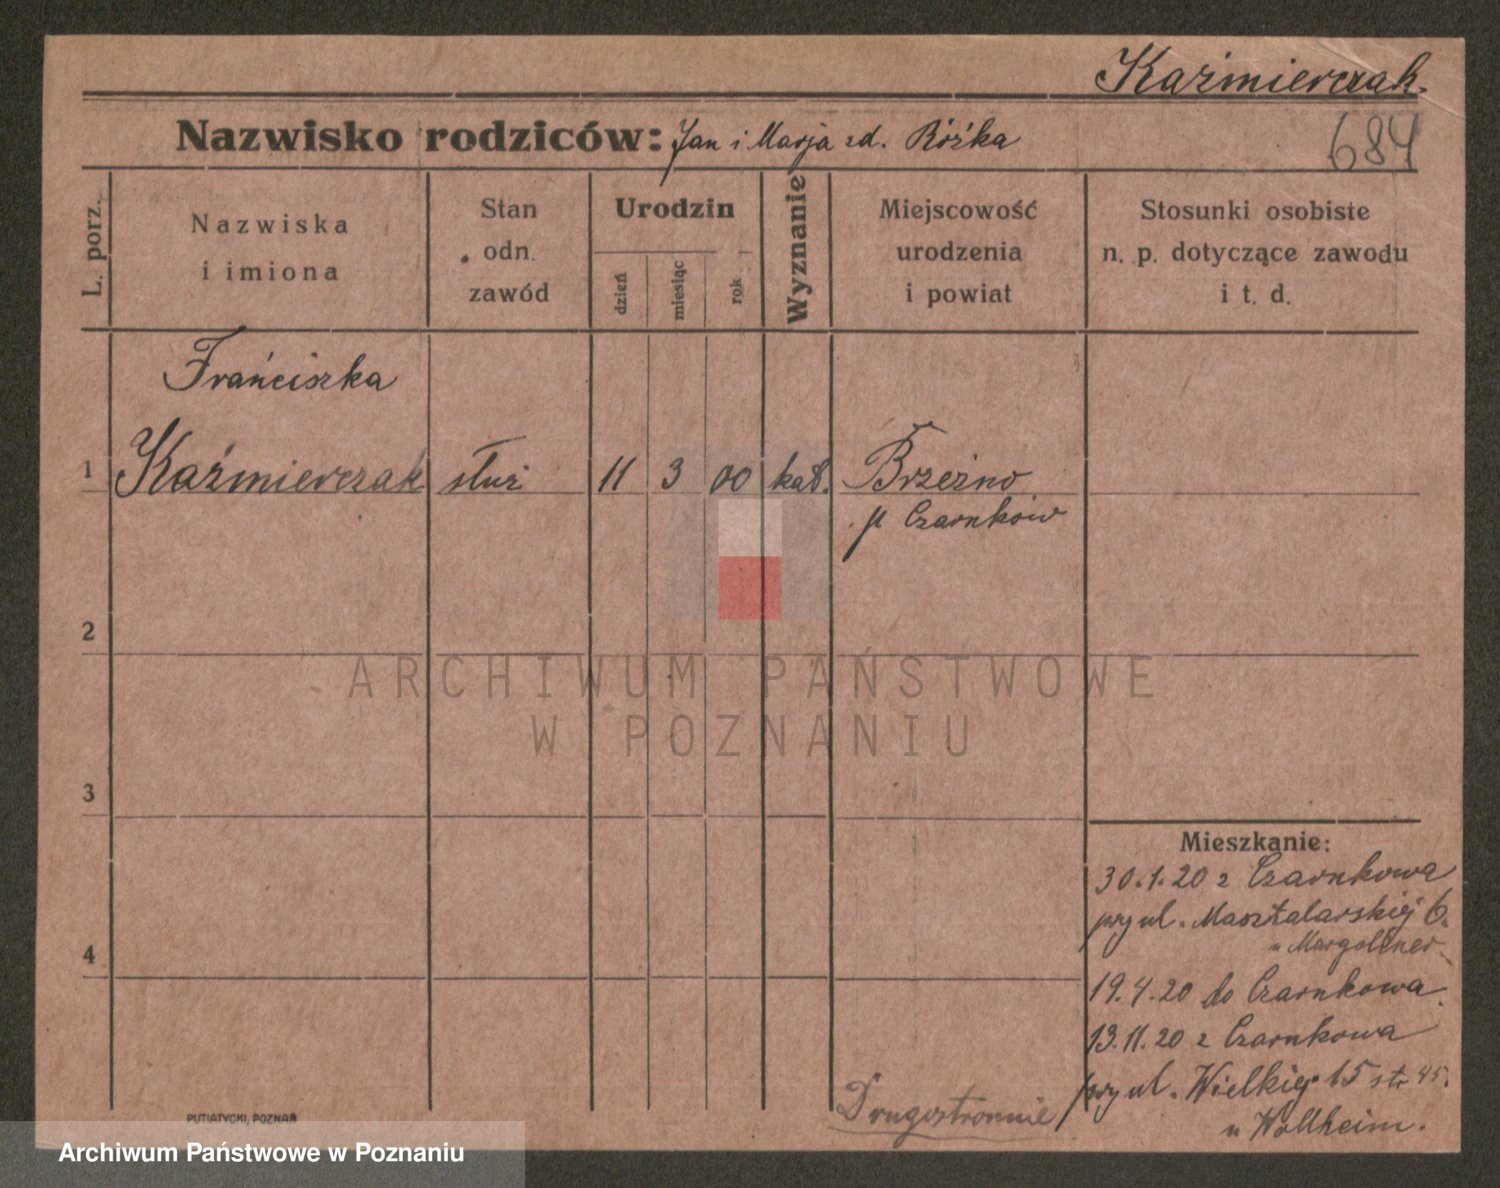 Kaźmierczak.
Nazwisko rodziców: Jan i Marja zd. Różka
684
L. porz.
Nazwiska
i imiona
Stan
odn.
zawód
Urodzin
dzień
miesiąc
rok
Wyznanie
Miejscowość
urodzenia
i powiat
Stosunki osobiste
n. p. dotyczące zawodu
i t. d.
Franciszka
1 Kaźmierczak służ 11 3 00 kat. Brzeźno
p Czarnków
2
3
4
ARCHIWUM PAŃSTWOWE
W POZNANIU
Mieszkanie:
30.1.20 z Czarnkowa
przy ul. Masztalarskiej 6.
u
19.4.20 do Czarnkowa.
13.11.20 z Czarnkowa
przy ul. Wielkiej 15 str 45.
u Wollheim.
Drugostronnie
PUTIATYCKI, POZNAŃ
Archiwum Państwowe w Poznaniu